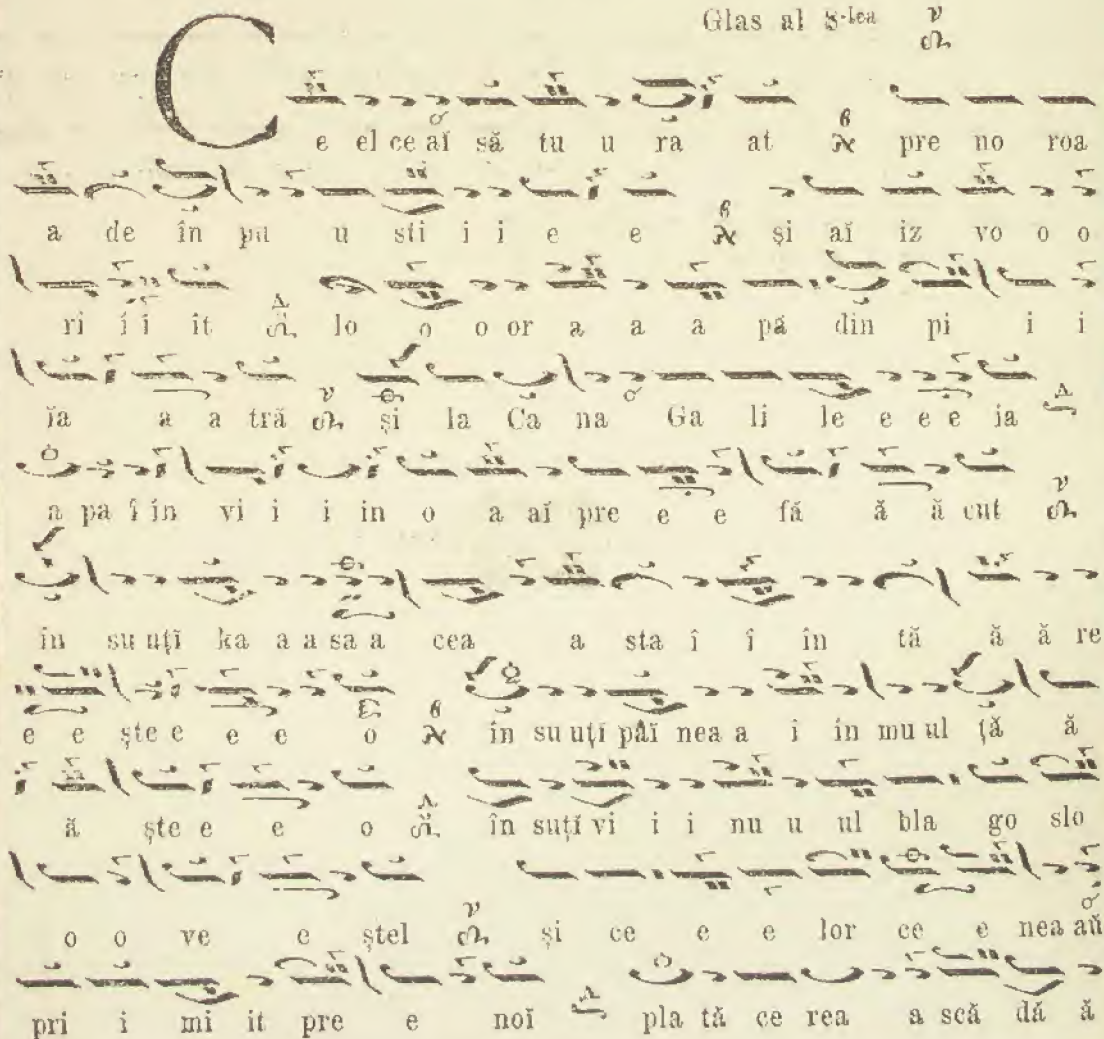 Glas al 8-lea
C
e el ce aĭ să tu u ră at pre no roa
a de în pu u sti i i e e și aĭ iz vo o o
ri i i it lo o o or a a a pă din pi i i
ĭa a a tră și la Ca na Ga li le e e e ia
a pa î în vi i i in o a aĭ pre e e fă ă ă cut
în su uțĭ ka a a sa a cea a sta î î în tă ă ă re
e e ște e e e o în su uțĭ pâĭ nea a i în mu ul ță ă
ă ște e e o în suțĭ vi i i nu u ul bla go slo
o o ve e ștel și ce e e lor ce e nea aŭ
pri i mi it pre e noĭ pla tă ce rea a scă dă ă